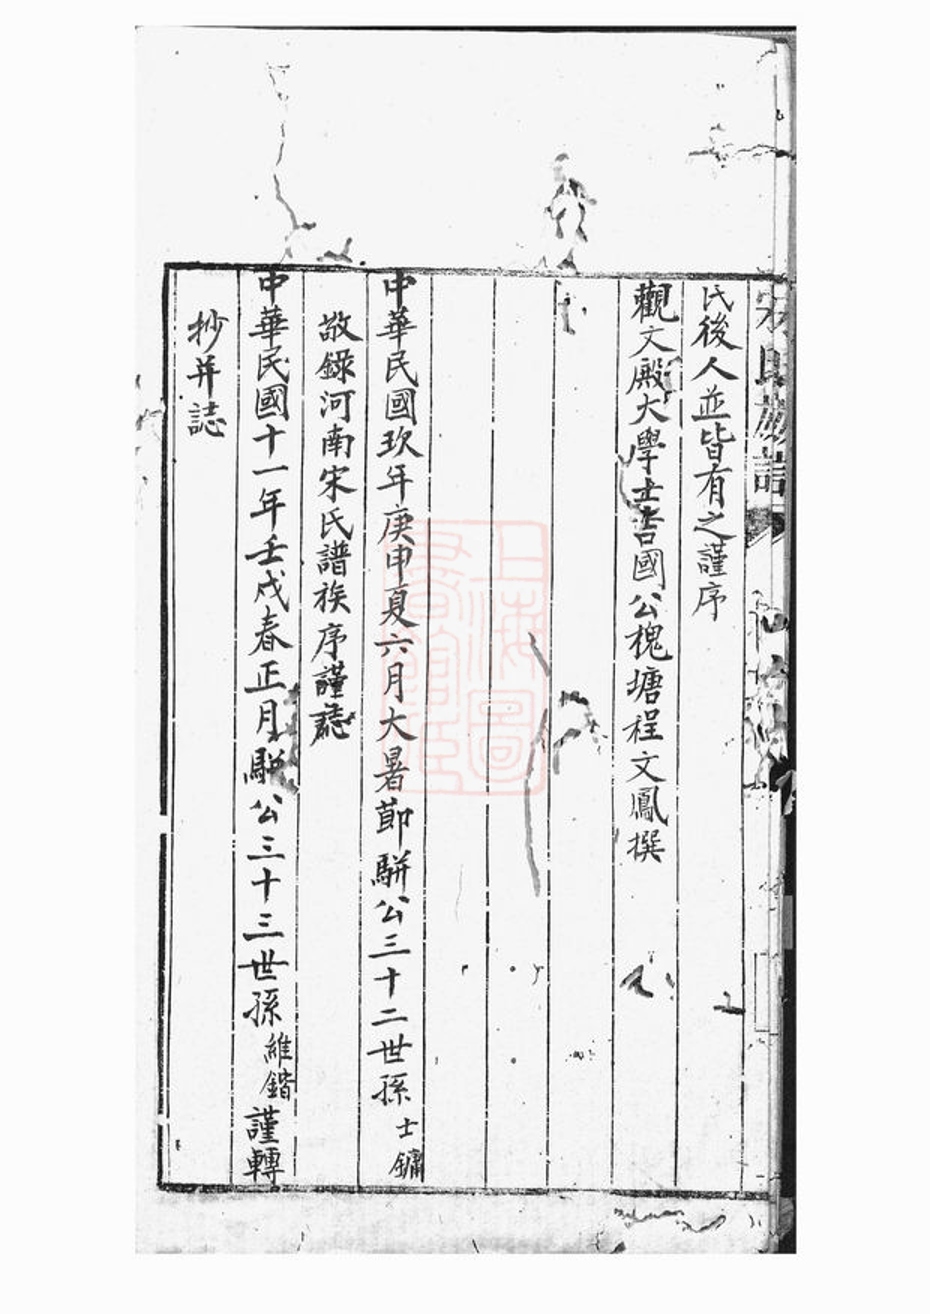 氏後人並皆有之謹序
觀文殿大學士吉國公槐塘程文鳳撰
中華民國玖年庚申夏六月大暑節騈公三十二世孫士鏞
敬錄河南宋氏譜族序謹誌
中華民國十一年壬戌春正月騈公三十三世孫維鍇謹轉
抄并誌
上海圖
書館藏